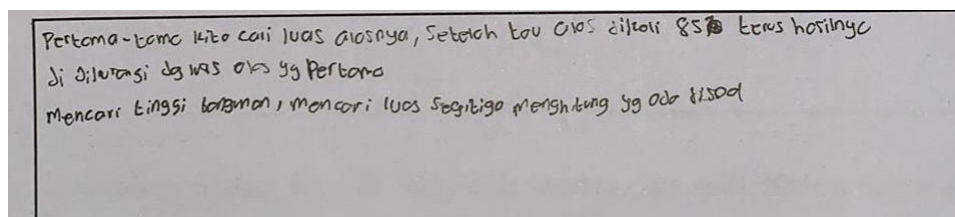 Pertama-tama kita cari luas alasnya, Setelah tau alas dikali 85% terus hasilnya
di dikurangi dg luas alas yg Pertama
Mencari tinggi bangunan, mencari luas segitiga menghitung yg ada disoal